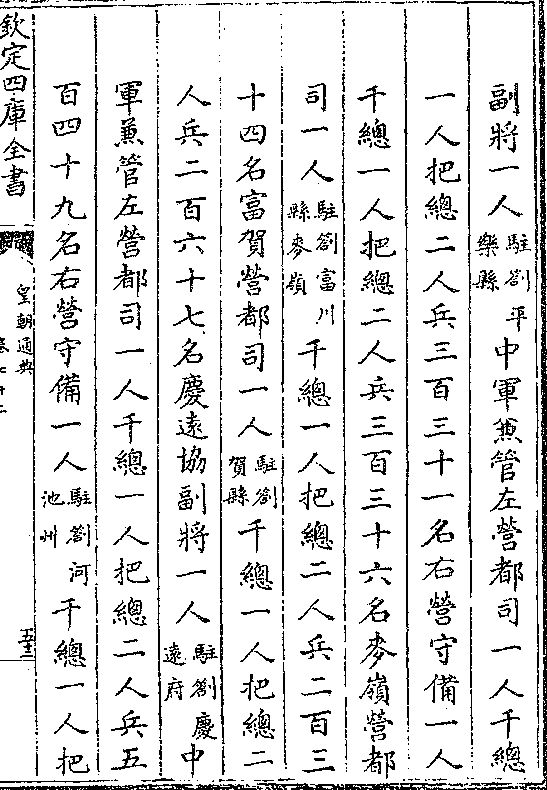 副將一人駐劄平樂縣中軍兼管左營都司一人千總
一人把總二人兵三百三十一名右營守備一人
千總一人把總二人兵三百三十六名麥嶺營都
司一人駐劄富川縣麥嶺千總一人把總二人兵二百三
十四名富賀營都司一人駐劄賀縣千總一人把總二
人兵二百六十七名慶遠協副將一人駐劄慶遠府中
軍兼管左營都司一人千總一人把總二人兵五
百四十九名右營守備一人駐劄河池州千總一人把
欽定四庫全書
皇朝通典